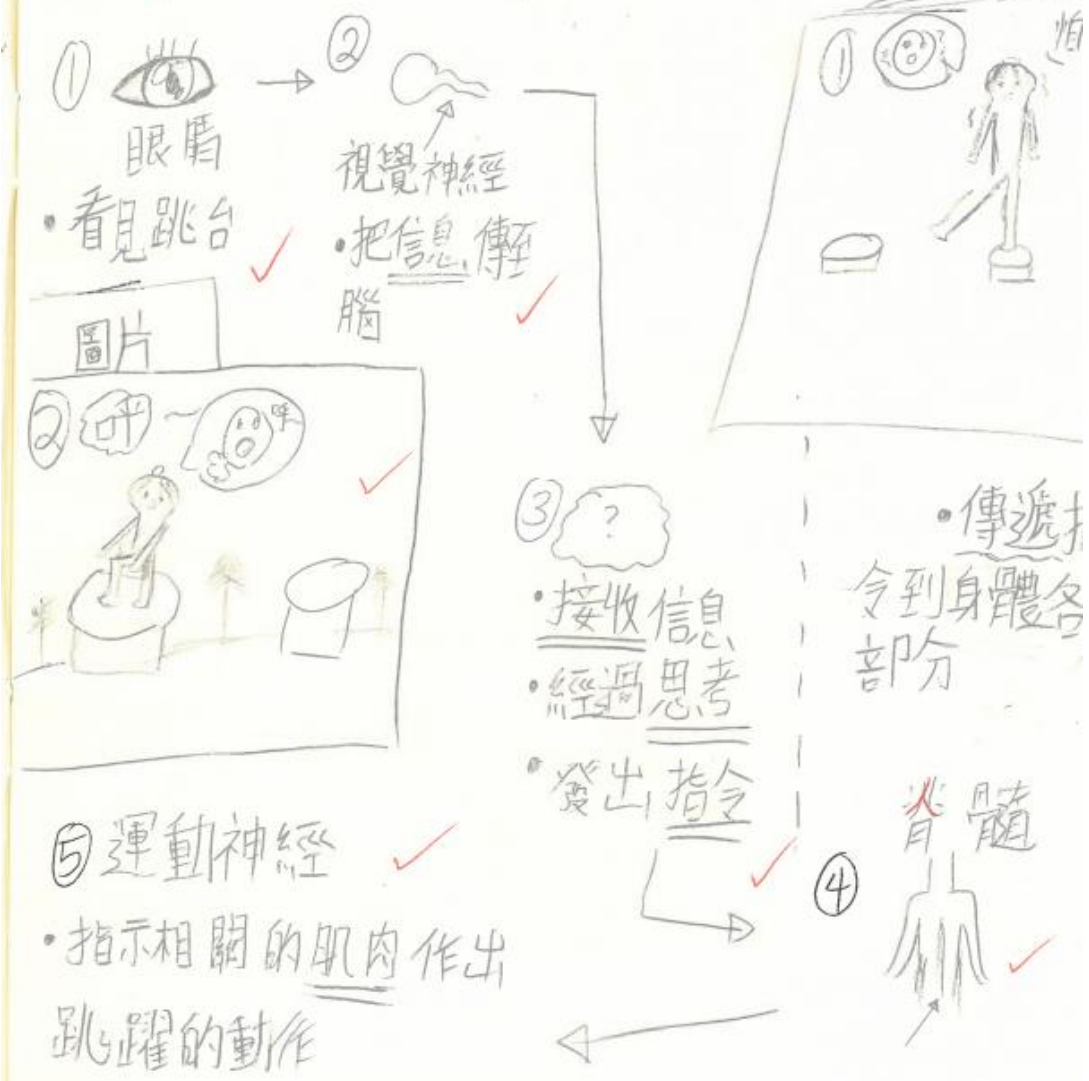 ①
眼睛
・看見跳台
②
視覺神經
・把信息傳至
腦
①
怕
圖片
② 呼
呼
③ ?
・接收信息
・經過思考
・發出指令
・傳遞指
令到身體各
部分
脊髓
④
⑤ 運動神經
・指示相關的肌肉作出
跳躍的動作